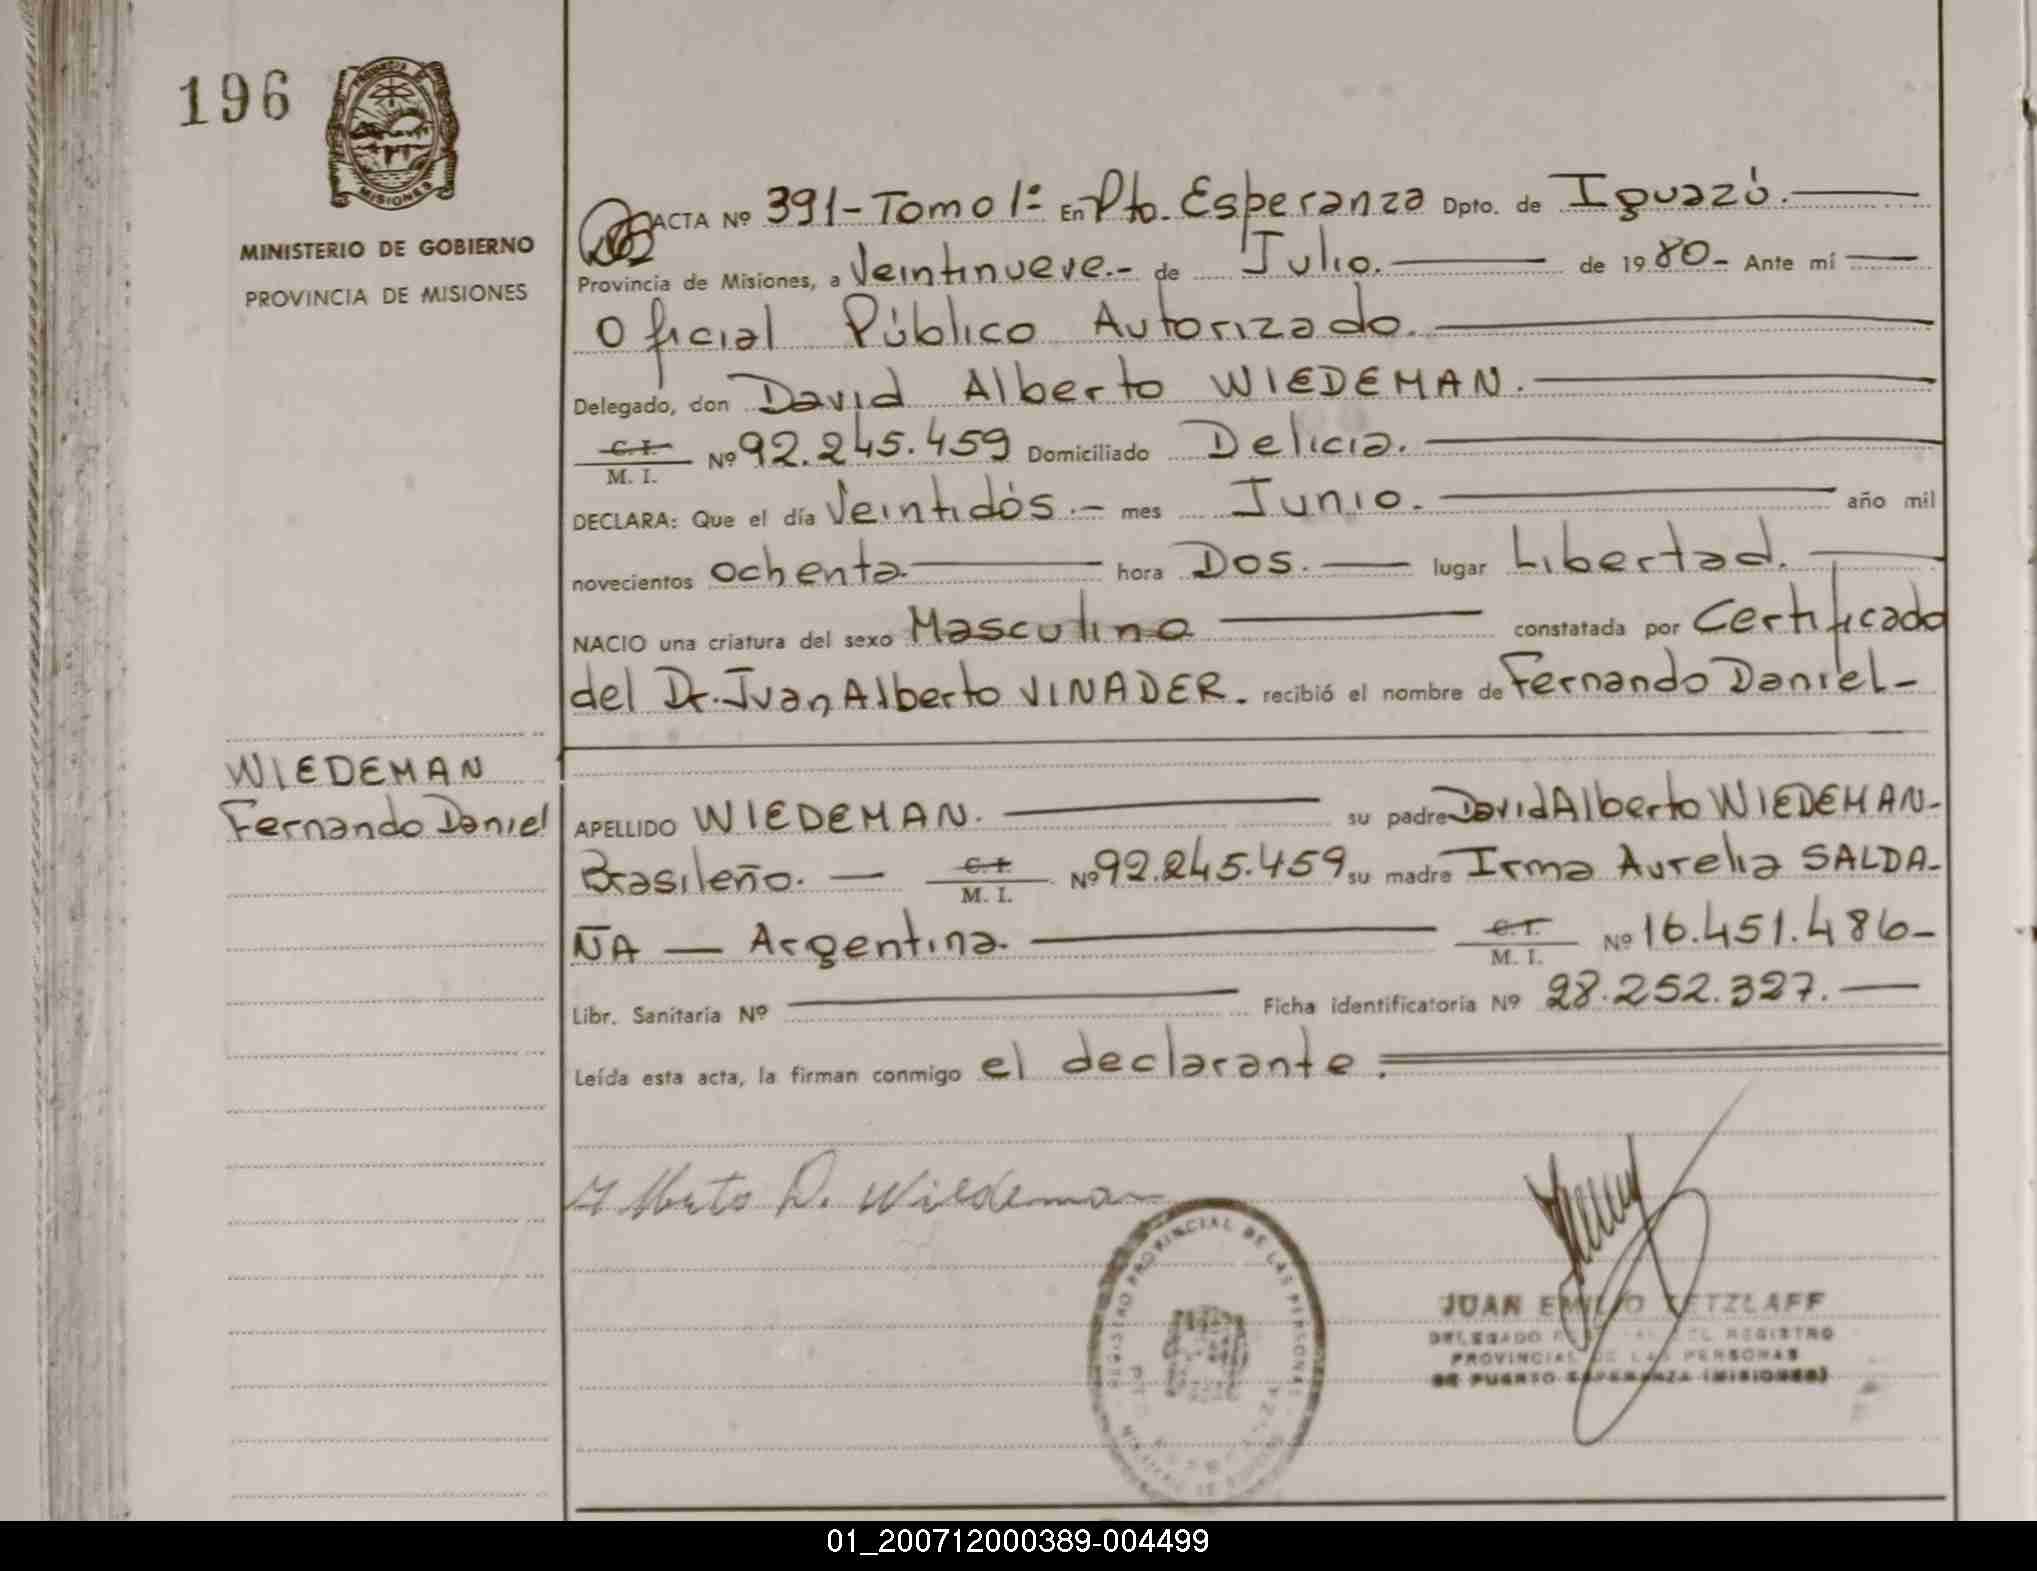 196
PROVINCIA DE
MISIONES
MINISTERIO DE GOBIERNO
PROVINCIA DE MISIONES
ACTA Nº 391-Tomo 1º En Pto. Esperanza Dpto. de Iguazú.
Provincia de Misiones, a Veintinueve.- de Julio. de 1980- Ante mí
Oficial Público Autorizado.
Delegado, don David Alberto WIEDEMAN.
C. I.
M. I. Nº 92.245.459 Domiciliado Delicia.
DECLARA: Que el día Veintidós.- mes Junio. año mil
novecientos ochenta. hora Dos. lugar Libertad.
NACIO una criatura del sexo Masculino constatada por Certificado
del Dr. Juan Alberto VINADER. recibió el nombre de Fernando Daniel-
WIEDEMAN
Fernando Daniel
APELLIDO WIEDEMAN. su padre David Alberto WIEDEMAN-
Brasileño. — C. I.
M. I. Nº 92.245.459 su madre Irma Aurelia SALDA-
ÑA — Argentina. C. I.
M. I. Nº 16.451.486-
Libr. Sanitaria Nº Ficha identificatoria Nº 28.252.327.
Leída esta acta, la firman conmigo el declarante.
Alberto D. Wiedeman
REGISTRO PROVINCIAL DE LAS PERSONAS
JUAN EMILIO RETZLAFF
DELEGADO DEL REGISTRO
PROVINCIAL DE LAS PERSONAS
DE PUERTO ESPERANZA (MISIONES)
01_200712000389-004499